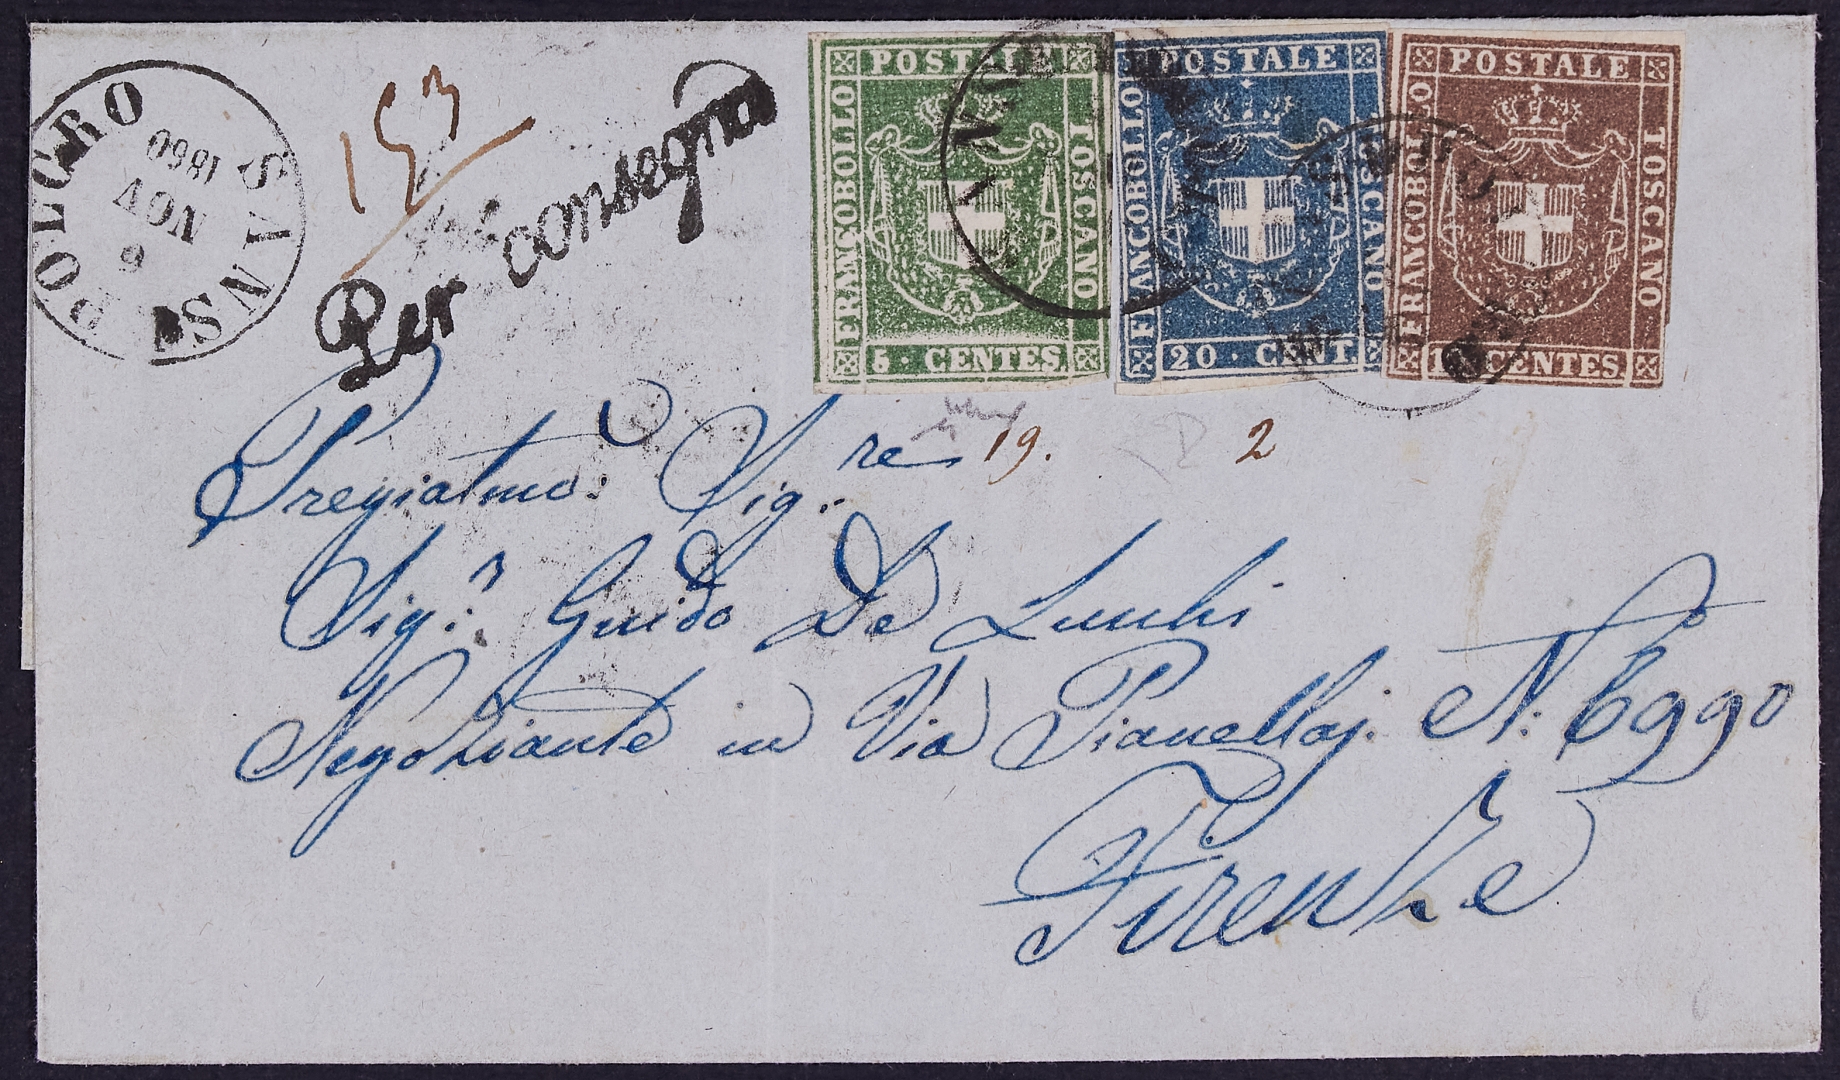 SANSEPOLCRO
6
NOV
1860
153
Per consegna
FRANCOBOLLO POSTALE TOSCANO
5 · CENTES.
FRANCOBOLLO POSTALE TOSCANO
20 · CENT
FRANCOBOLLO POSTALE TOSCANO
10 CENTES.
19. 2
Pregiatmo: Sig:re
Sig.r Guido De
Negoziante in Via N: 6990
Firenze